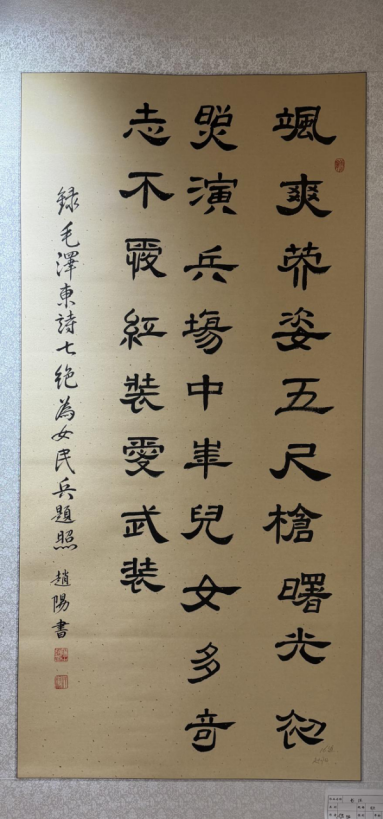 颯爽英姿五尺槍曙光初
照演兵場中華兒女多奇
志不愛紅裝愛武裝
録毛澤東詩七絶為女民兵題照
趙陽書